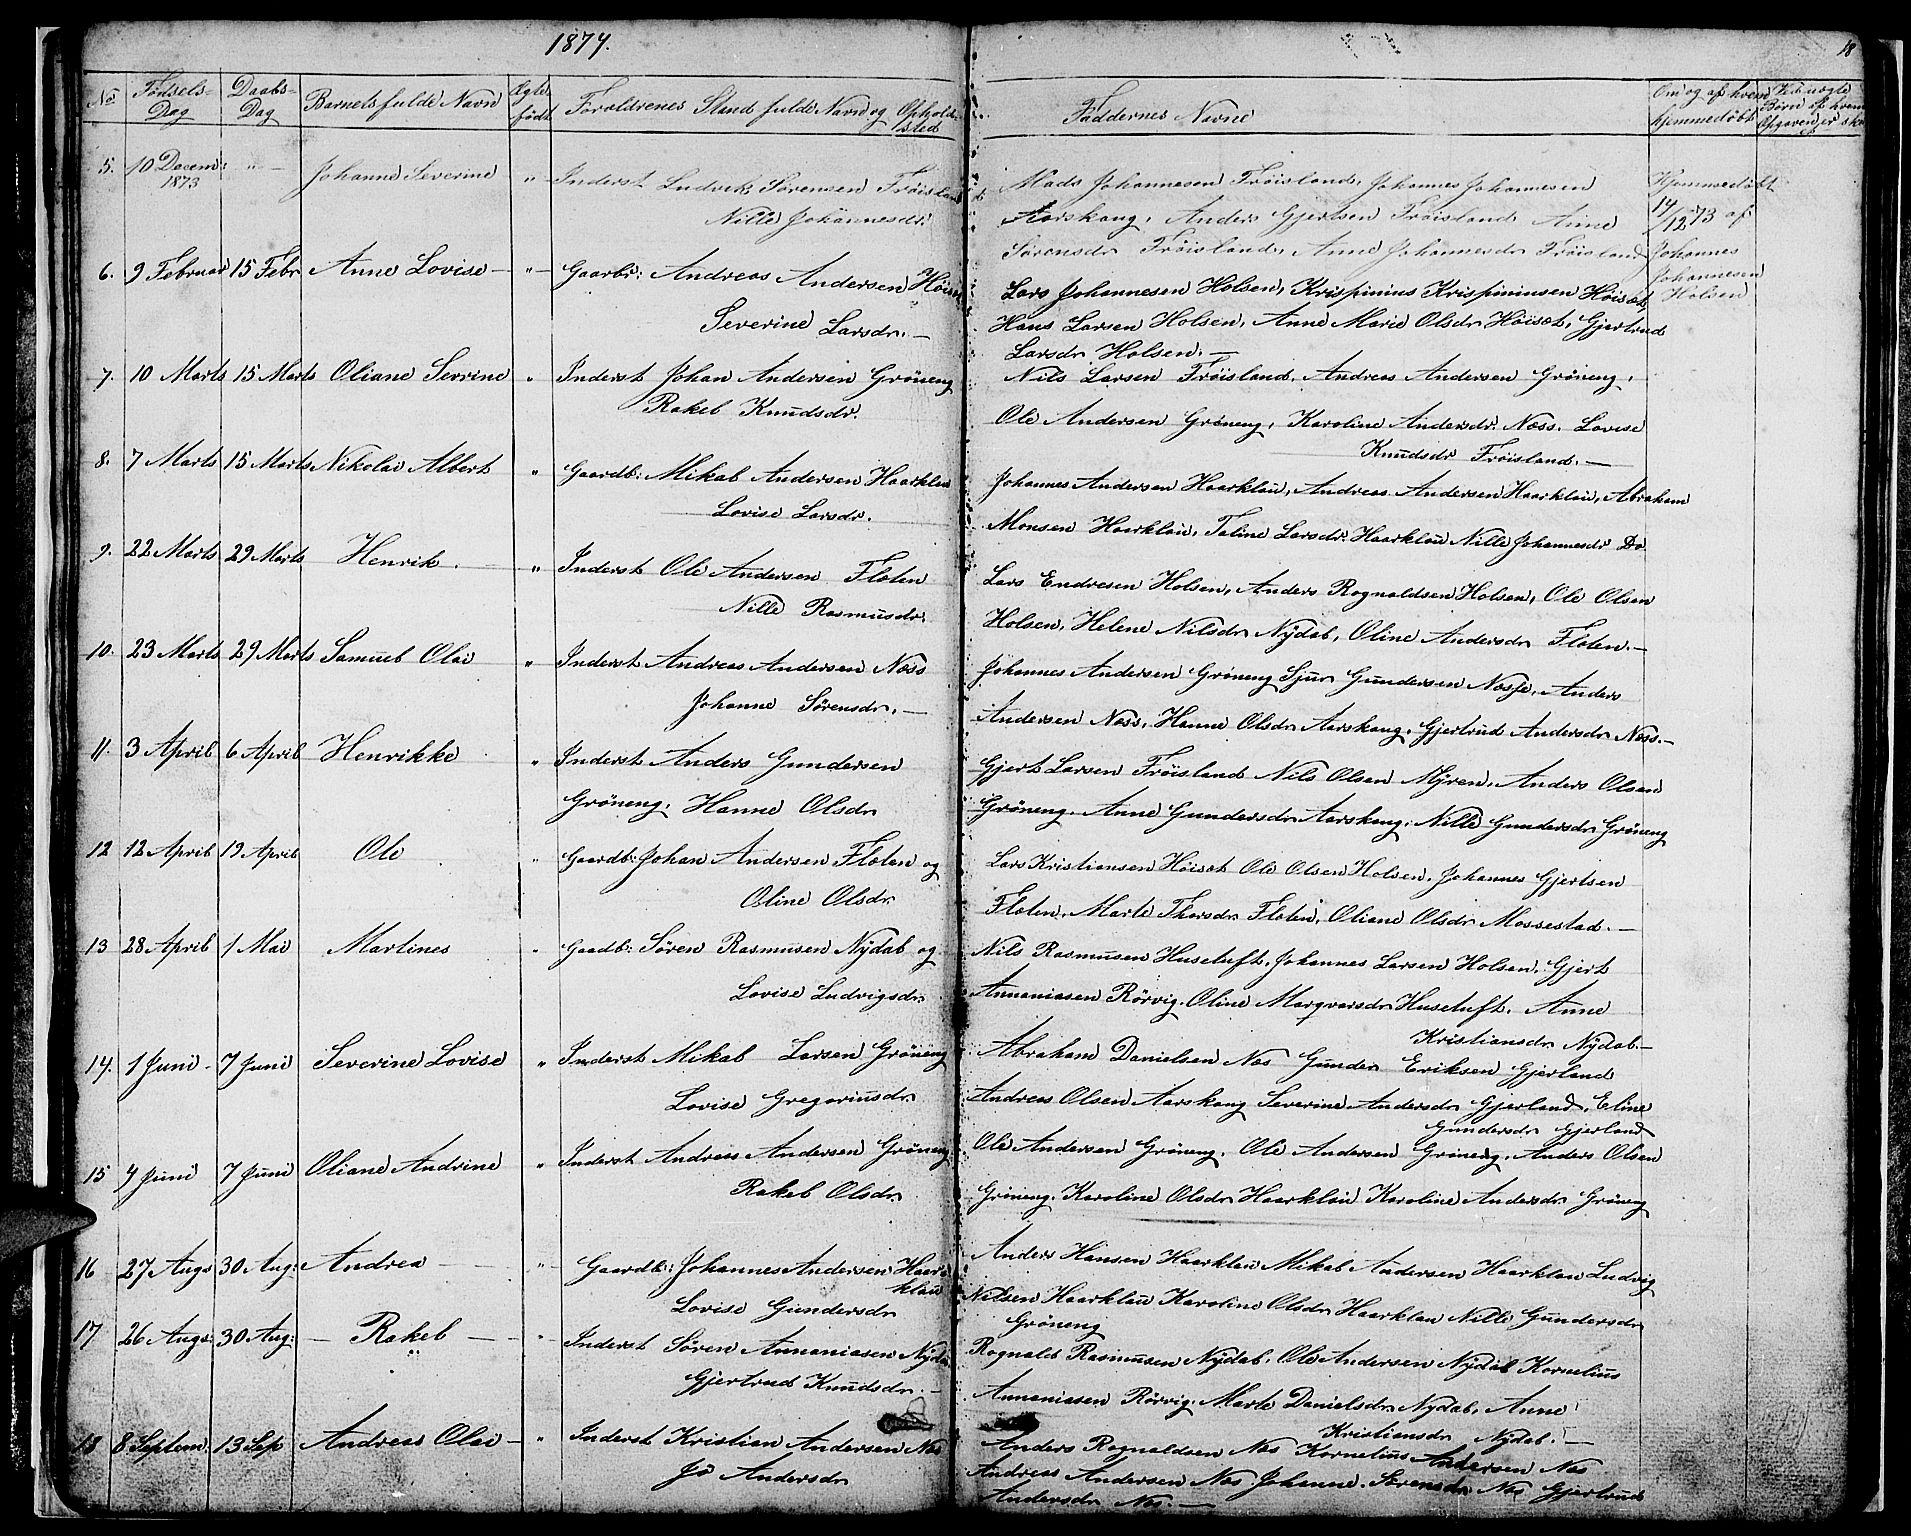 1874.
18
No
Fødsels-
Dag
Daabs-
Dag
Barnets fulde Navn
Ægte
født
Forældrenes Stand fulde Navn og Opholds
sted
Faddernes Navne
Om og af hvem
hjemmedøbt
Børn af hvem
Opgaven er skr
5. 10 Decem: " — Johanne Severine " Inderst Ludvik Sørensen Frøisland
1873
Nille Johannesdr.
Mads Johannesen Frøisland, Johannes Johannesen
Aarskaug, Anders Gjertsen Frøisland Anne
Sørensdr Frøisland, Anne Johannesdr Frøisland
Hjemmedøbt
14/12 73 af
Johannes
Johannesen
Holsen
6. 9 Februar 15 Febr Anne Lovise — " Gaarbr: Andreas Andersen Høisæt
Severine Larsdr. —
Lars Johannesen Holsen, Krispinius Krispiniusen Høisæt,
Hans Larsen Holsen, Anne Marie Olsdr Høisæt, Gjertrud
Larsdr Holsen. —
7. 10 Marts 15 Marts Oliane Sevrine " Inderst Johan Andersen Grøneng
Rakel Knudsdr.
Nils Larsen Frøisland, Andreas Andersen Grøneng,
Ole Andersen Grøneng, Karoline Andersdr. Næss. Lovise
Knudsdr Frøisland. —
8. 7 Marts 15 Marts Nikolai Albert " Gaardb: Mikal Andersen Haarklau
Lovise Larsdr.
Johannes Andersen Haarklau, Andreas Andersen Haarklau, Abraham
Monsen Haarklau, Taline Larsdr. Haarklau Nille Johannesdr Do
9. 22 Marts 29 Marts Henrik. " Inderst Ole Andersen Floten
Nille Rasmusdr.
Lars Endresen Holsen, Anders Rognaldsen Holsen, Ole Olsen
Holsen, Helene Nilsdr Nydal, Oline Andersdr Floten. —
10. 23 Marts 29 Marts Samuel Olai " Inderst Andreas Andersen Næss
Johanne Sørensdr. —
Johannes Andersen Grøneng Sjur Gundersen Næsse, Anders
Andersen Næss, Hanne Olsdr Aarskaug, Gjertrud Andersdr Næss. —
11. 3 April 6 April Henrikke " Inderst Anders Gundersen
Grøneng, Hanne Olsdr
Gjert Larsen Frøisland Nils Olsen Myren, Anders Olsen
Grøneng, Anne Gundersdr Aarskaug, Nille Gundersdr Grøneng
12 12 April 19 April Ole " Gaardb: Johan Andersen Floten og
Oline Olsdr
Lars Kristiansen Høisæt Ole Olsen Holsen, Johannes Gjertsen
Floten, Marte Thorsdr Floten, Oliane Olsdr Mossestad. —
13 28 April 1 Mai Martines " Gaadb: Søren Rasmusen Nydal og
Lovise Ludvigsdr.
Nils Rasmusen Husetuft, Johannes Larsen Holsen, Gjert
Annaniasen Rørvig, Oline Marqvarsdr Husetuft. Anne
Kristiansdr Nydal. —
14. 1 Juni. 7 Juni Severine Lovise " Inderst Mikal Larsen Grøneng
Lovise Gregoriusdr
Abraham Danielsen Næs Gunder Eriksen Gjerland
Andreas Olsen Aarskaug Severine Andersdr Gjerland, Eline
Gundersdr Gjerland
15 4 Juni 7 Juni Oliane Andrine " Inderst Andreas Andersen Grøneng
Rakel Olsdr
Ole Andersen Grøneng, Ole Andersen Grøneng, Anders Olsen
Grøneng, Karoline Olsdr Haarklau Karoline Andersdr Grøneng
16 27 Augs 30 Aug: Andrea — " Gaardb: Johannes Andersen Haar-
klau
Lovise Gundersdr
Anders Hansen Haarklau Mikal Andersen Haarklau Ludvig
Nilsen Haarklau Karoline Olsdr Haarklau Nille Gundersdr
Grøneng
17 26 Augs: 30 Aug: — Rakel — " Inderst Søren Annaniasen Nydal
Gjertrud Knudsdr. —
Rognald Rasmusen Nydal, Ole Andersen Nydal Kornelius
Annaniasen Rørvig, Marte Danielsdr Nydal, Anne
Kristiansdr Nydal. —
18 8 Septem. 13 Sep Andreas Olai — " Inderst Kristian Andersen Næs
Jo Andersdr
Anders Rognaldsen Næs Kornelius Andersen Næs
Andreas Andersen Næs Johanne Sørensdr Næs Gjertrud
Andersdr Næs. —